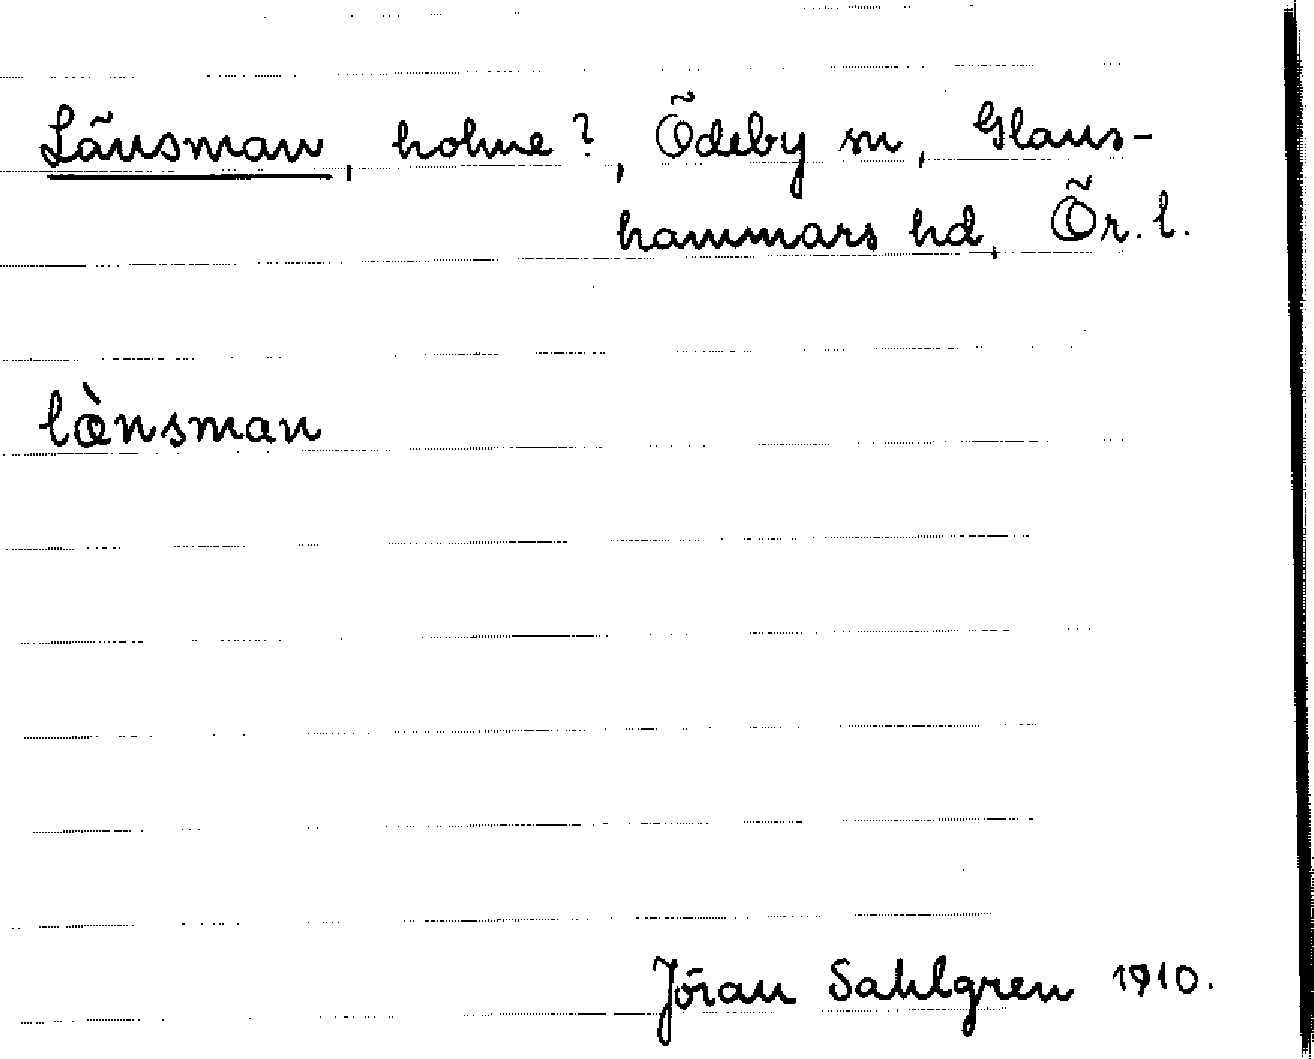 Länsman, holme?, Ödeby sn, Glans-
hammars hd, Ör. l.
lὰnsman
Jöran Sahlgren 1910.